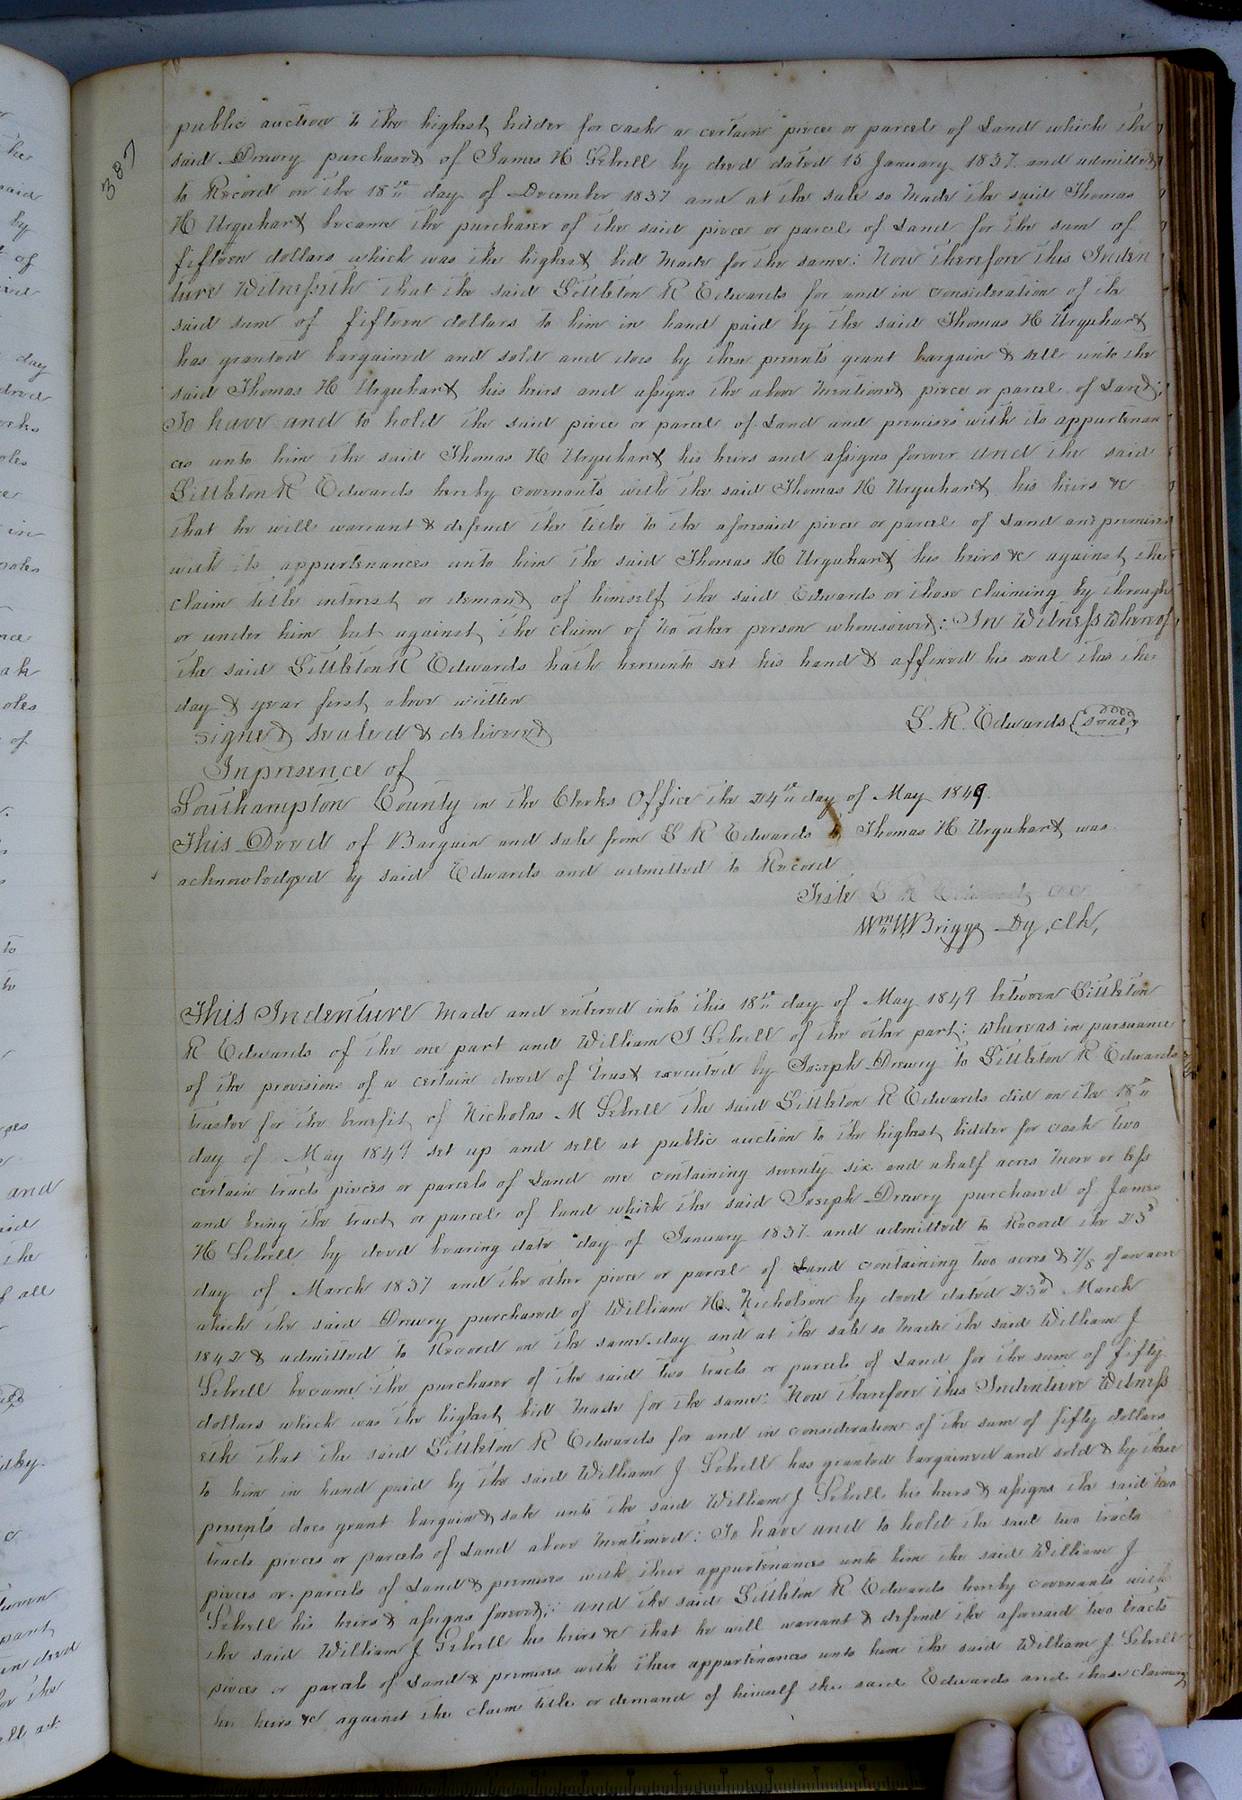 387
public auction to the highest bidder for cash a certain piece or parcel of Land which the
said Drewry purchased of James H Sebrell by deed dated 15 January 1837. and admitted
to Record on the 18th day of December 1837 and at the sale so made the said Thomas
H Urquhart became the purchaser of the said piece or parcel of Land for the sum of
fifteen dollars which was the highest bid made for the same: Now Therefore this Inden
ture Witnesseth that the said Littleton R Edwards for and in consideration of the
said sum of fifteen dollars to him in hand paid by the said Thomas H Urquhart
has granted bargained and sold and does by these presents grant bargain & sell unto the
said Thomas H Urquhart his heirs and assigns the above mentioned piece or parcel of Land;
To have and to hold the said piece or parcel of Land and premises with its appurtenan
ces unto him the said Thomas H Urquhart his heirs and assigns forever and the said
Littleton R Edwards hereby covenants with the said Thomas H Urquhart his heirs &c
that he will warrant & defend the title to the aforesaid piece or parcel of Land and premises
with its appurtenances unto him the said Thomas H Urquhart his heirs &c against the
claim title interest or demand of himself the said Edwards or those claiming by through
or under him but against the claim of no other person whomsoever: In Witness whereof
the said Littleton R Edwards hath hereunto set his hand & affixed his seal this the
day & year first above written
signed sealed & delivered
L. R. Edwards {seal}
In presence of
Southampton County in the Clerks Office the 24th day of May 1849.
This Deed of Bargain and sale from L R Edwards to Thomas H Urquhart was
acknowledged by said Edwards and admitted to Record
Teste L R Edwards CC
Wm W Briggs Dy, clk,
This Indenture made and entered into this 18th day of May 1849 between Littleton
R Edwards of the one part and William J Sebrell of the other part: whereas in pursuance
of the provisions of a certain deed of trust executed by Joseph Drewry to Littleton R Edwards
trustee for the benefit of Nicholas M Sebrell the said Littleton R Edwards did on the 18th
day of May 1849 set up and sell at public auction to the highest bidder for cash two
certain tracts pieces or parcels of Land one containing seventy six and a half acres more or less
and being the tract or parcel of land which the said Joseph Drewry purchased of James
H Sebrell by deed bearing date day of January 1837. and admitted to Record the 23d
day of March 1837 and the other piece or parcel of Land containing two acres & 7/8 of an acre
which the said Drewry purchased of William H. Nicholson by deed dated 23d March
1842 & admitted to Record on the same day and at the sale so made the said William J
Sebrell became the purchaser of the said two tracts or parcels of Land for the sum of fifty
dollars which was the highest bid made for the same: Now therefore this Indenture Witness
eth that the said Littleton R Edwards for and in consideration of the sum of fifty dollars
to him in hand paid by the said William J Sebrell has granted bargained and sold & by these
presents does grant bargain & sale unto the said William J Sebrell his heirs & assigns the said two
tracts pieces or parcels of Land above mentioned: To have and to hold the said two tracts
pieces or parcels of Land & premises with their appurtenances unto him the said William J
Sebrell his heirs & assigns forever; and the said Littleton R Edwards hereby covenants with
the said William J Sebrell his heirs &c that he will warrant & defend the aforesaid two tracts
pieces or parcels of Land & premises with their appurtenances unto him the said William J. Sebrell
his heirs &c against the claim title or demand of himself the said Edwards and those claiming